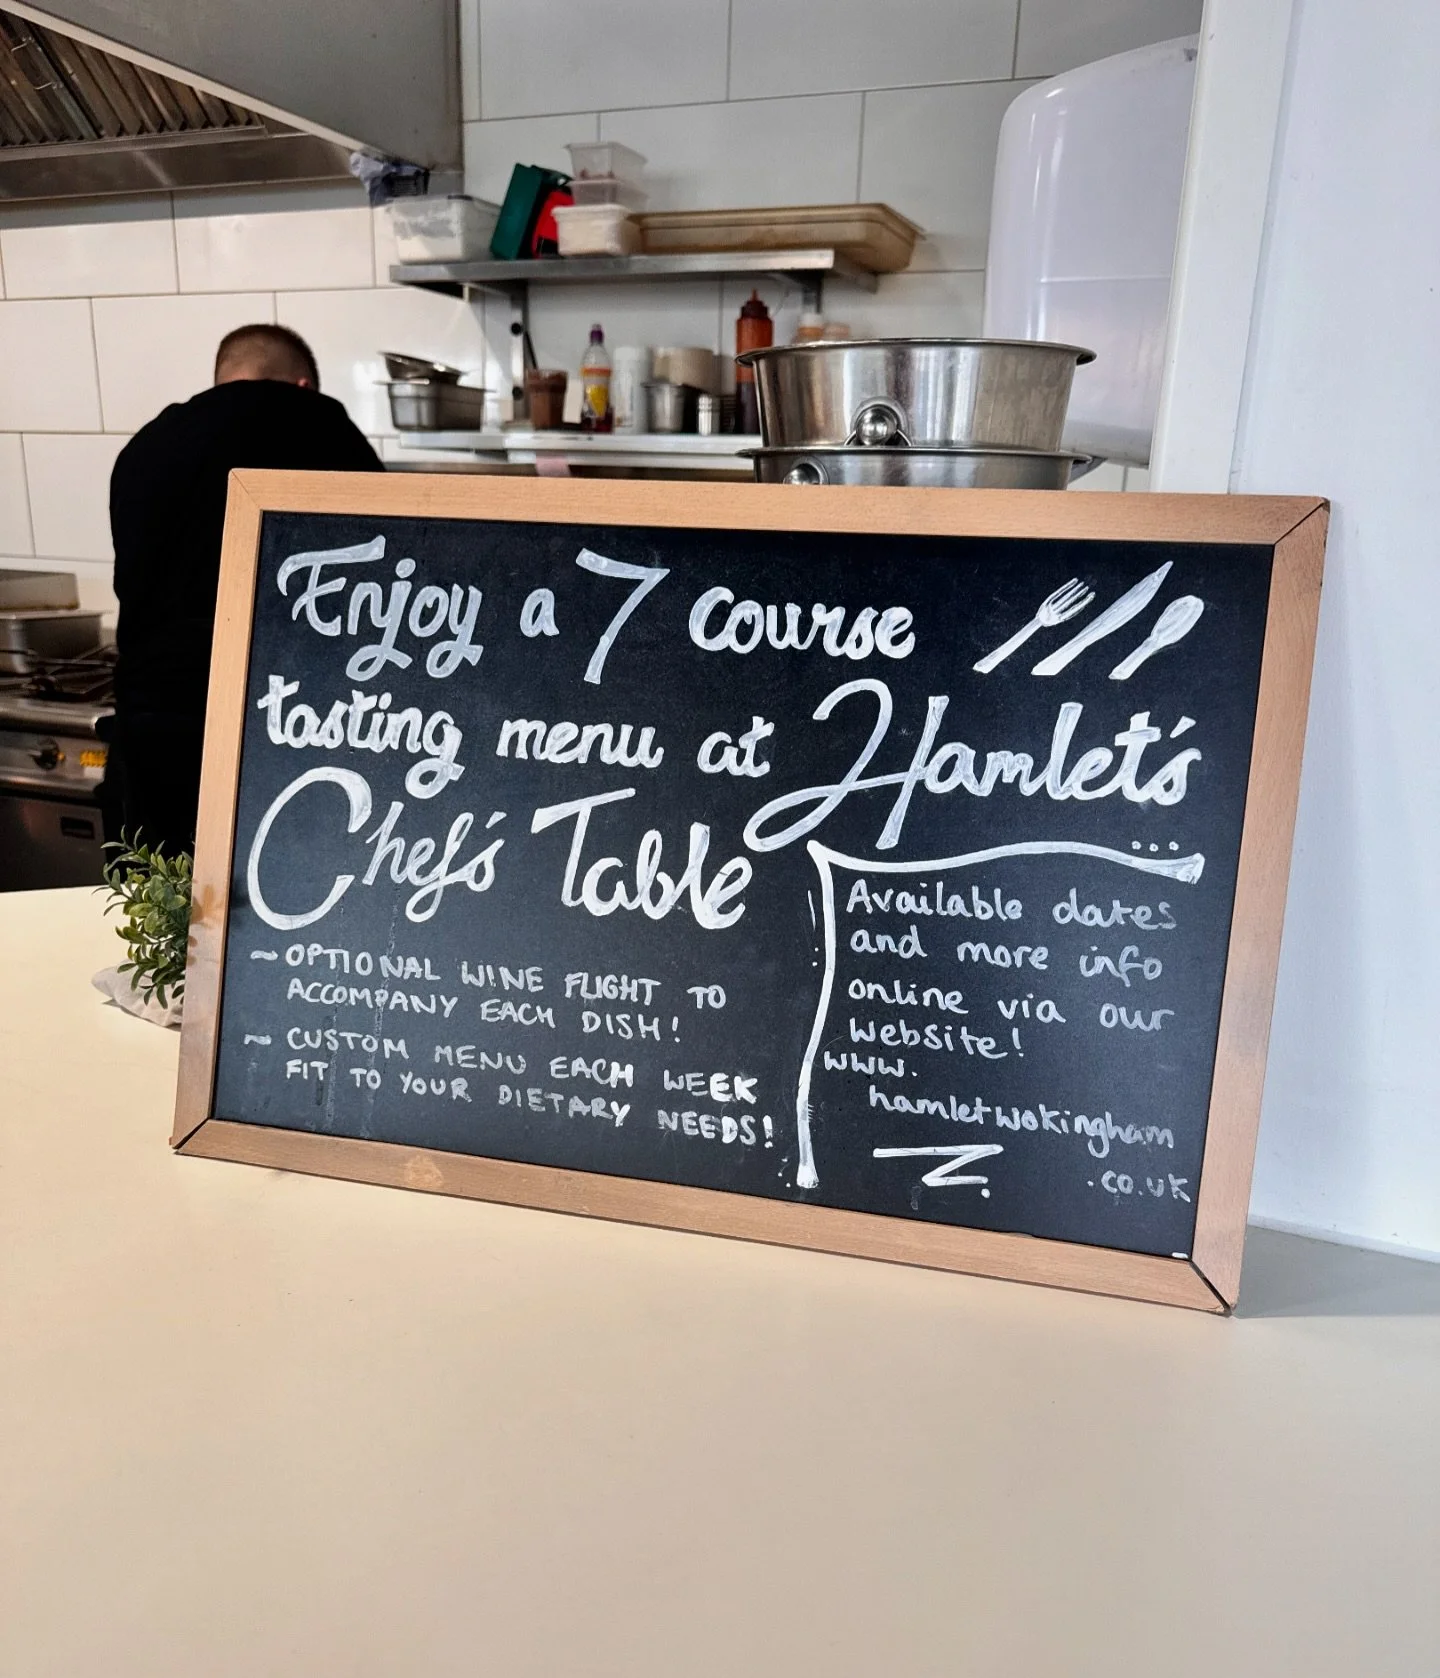 Enjoy a 7 course
tasting menu at Hamlet's
Chef's Table
~ OPTIONAL WINE FLIGHT TO
ACCOMPANY EACH DISH!
~ CUSTOM MENU EACH WEEK
FIT TO YOUR DIETARY NEEDS!
...
Available dates
and more info
online via our
website!
www.
hamletwokingham
.co.uk